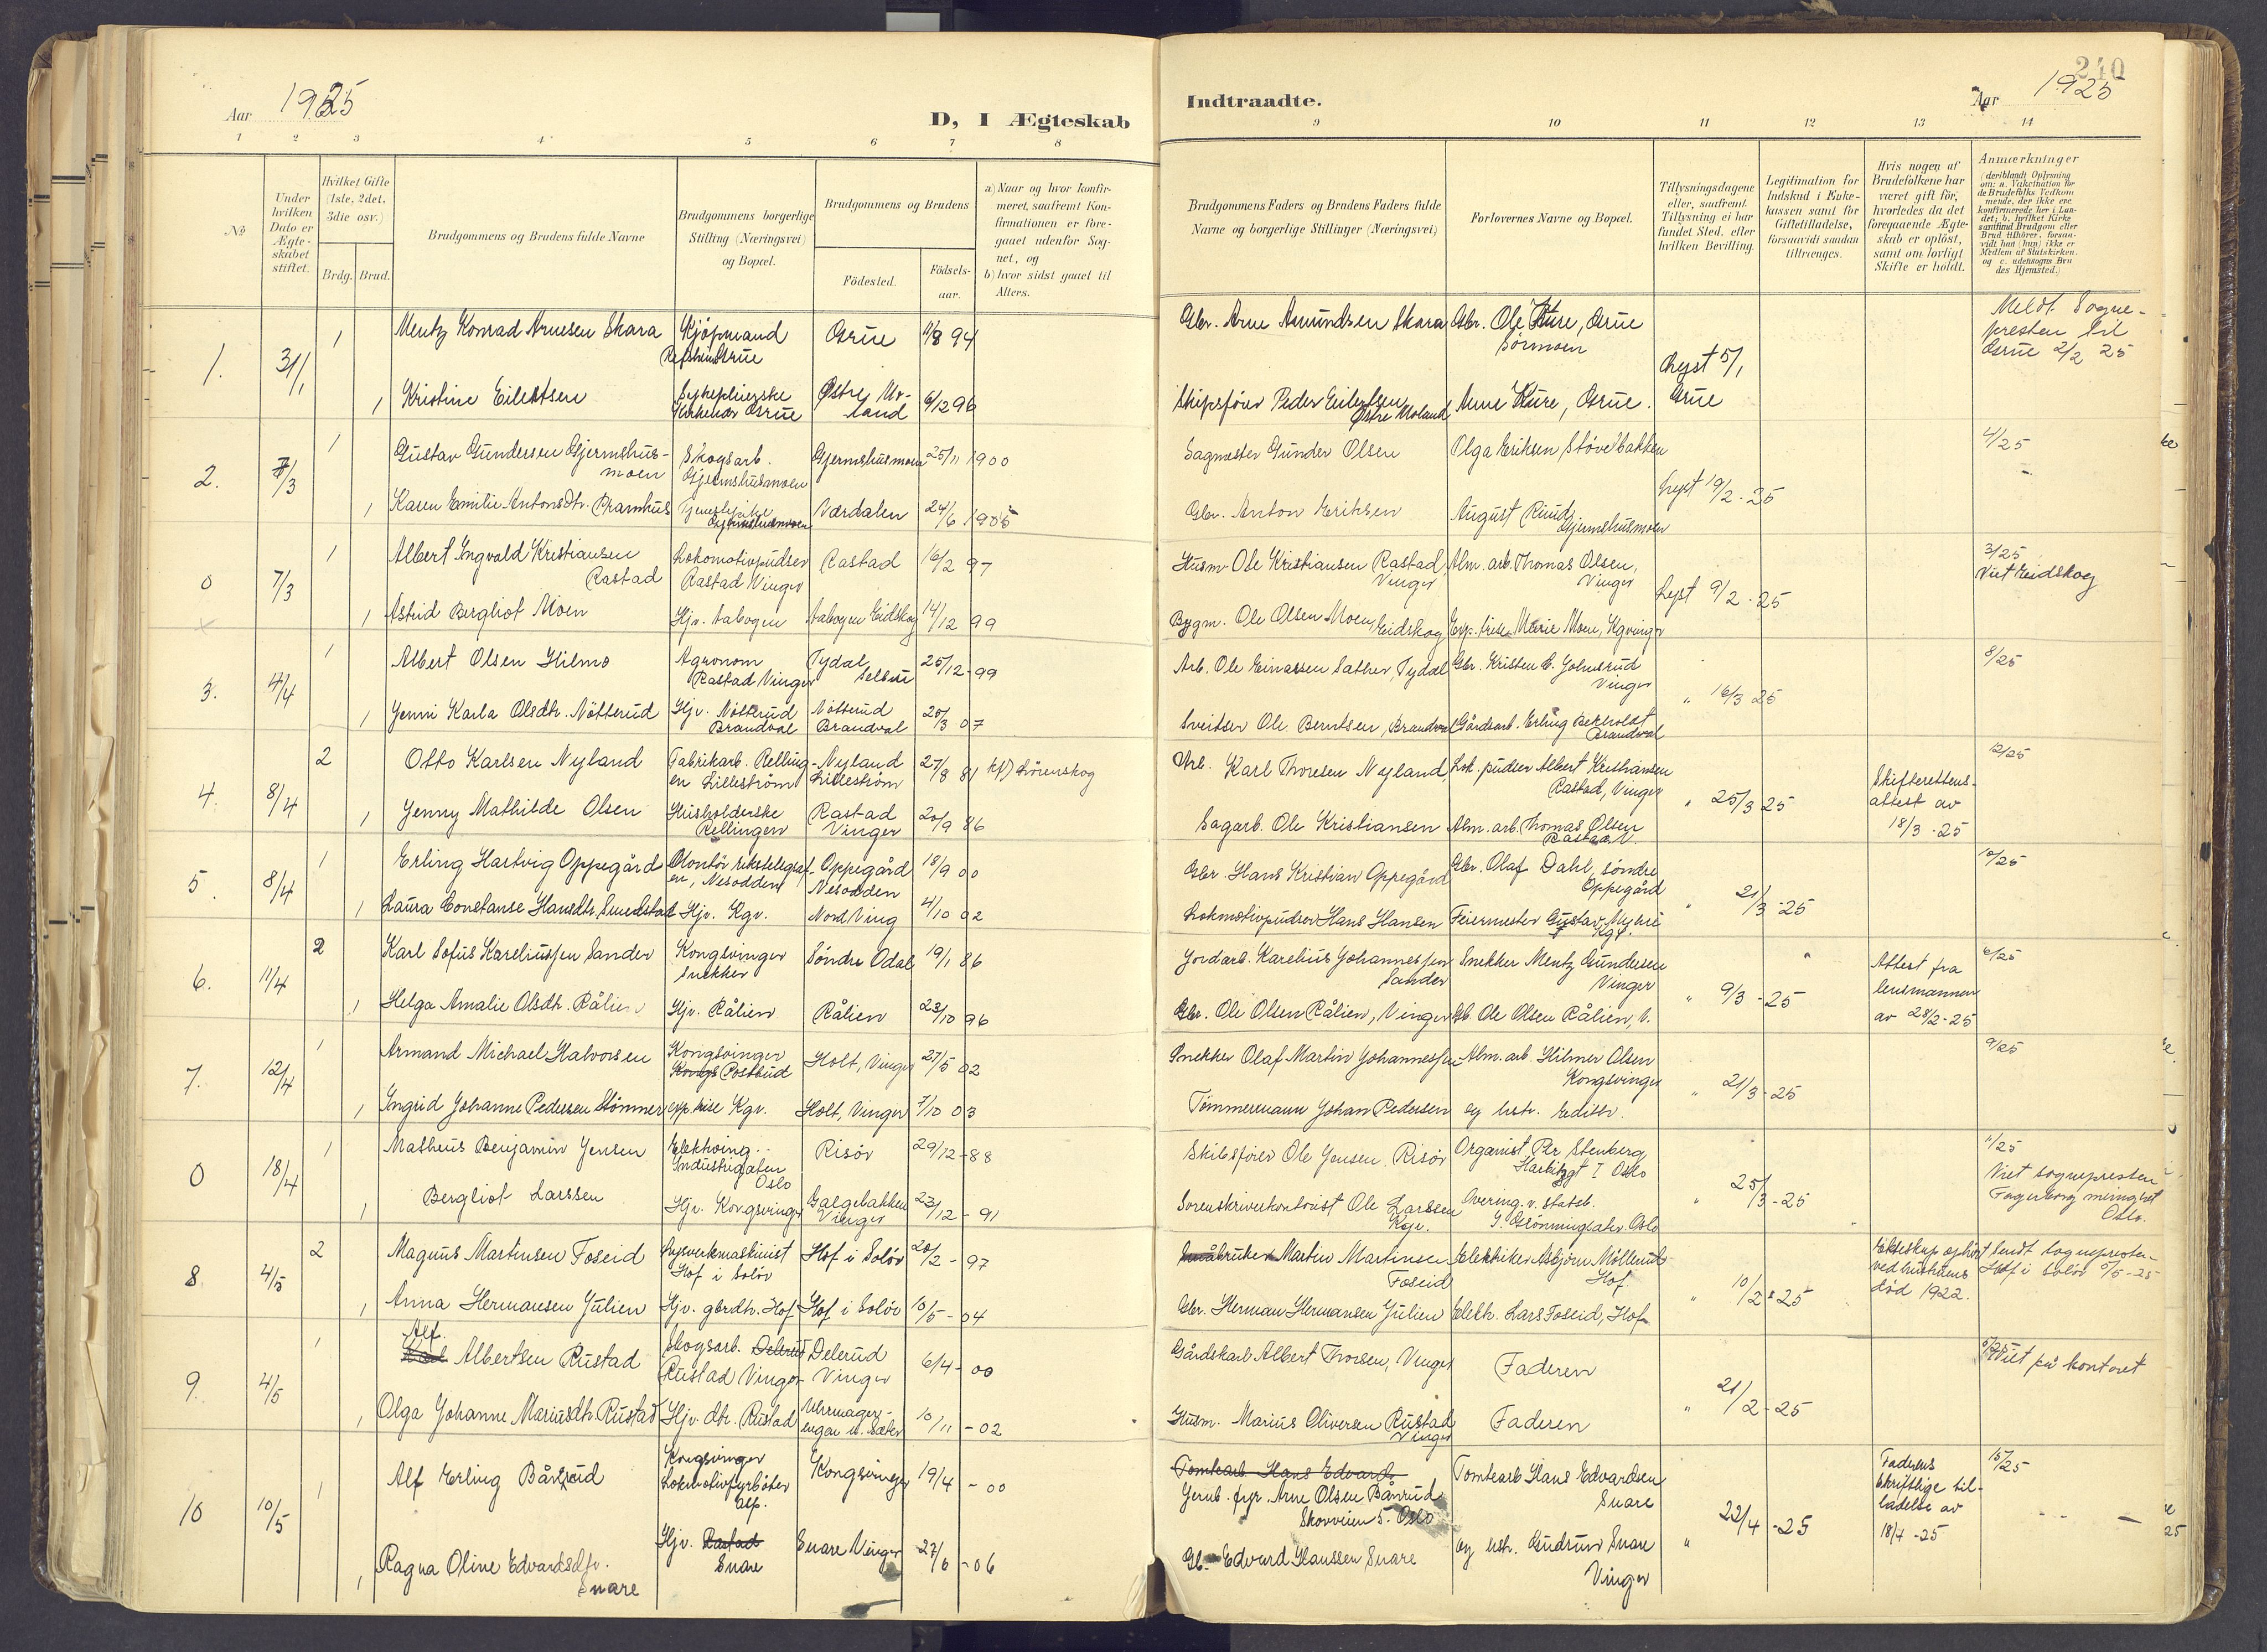 Aar 1925
D, I Ægteskab
1 2 3 4 5 6 7 8
№
Under hvilken Dato er Ægteskabet stiftet.
Hvilket Gifte (1ste, 2det, 3die osv.)
Brdg. Brud.
Brudgommens og Brudens fulde Navne
Brudgommens borgerlige Stilling (Næringsvei) og Bopæl.
Brudgommens og Brudens
Födested. Födsels-aar.
a) Naar og hvor konfirmeret, saafremt Konfirmationen er foregaaet udenfor Sognet, og
b) hvor sidst gaaet til Alters.
1. 31/1 1 Mentz Konrad Arnesen Skara Kjøpmand Grue 11/8 94
1 Kristine Eilertsen Sykepleierske Kirkenær Grue Østre Moland 6/12 96
2. 7/3 1 Gustav Gundersen Gjermshusmoen Skogsarb. Gjermshusmoen Gjermshusmoen 25/11 1900
1 Karen Emilie Antonsdtr. Pramhus Gjermshusmoen Værdalen 24/6 1905
0 7/3 1 Albert Ingvald Kristiansen Rastad Lokomotivpudser Rastad Vinger Rastad 16/2 97
1 Astrid Bergliot Moen Hjv. Aabogen Aabogen Eidskog 14/12 99
3. 4/4 1 Albert Olsen Hilmo Agronom Rastad Vinger Tydal Selbu 25/12-99
1 Jenni Karla Olsdtr. Nötterud Hjv. Nötterud Brandval Nötterud Brandval 20/3 07
4. 8/4 2 Otto Karlsen Nyland Fabrikarb. Rellingen Lilleström Nyland Lilleström 27/8 81 kf) Lörenskog
1 Jenny Mathilde Olsen Husholderske Rellingen Rastad Vinger 20/9 86
5. 8/4 1 Erling Hartvig Oppegård Montör rikstelegrafen, Nesodden Oppegård Nesodden 18/9 00
1 Laura Constanse Hansdtr. Smedstad Hjv. Kgv. Nord Ving 4/10 02
6. 11/4 2 Karl Sofus Kareliussen Sander Kongsvinger Snekker Söndre Odal 19/1 86
1 Helga Amalie Olsdtr. Rålien Hjv. Rålien Rålien 23/10 96
7. 12/4 1 Armand Michael Halvorsen Kongsvinger Postbud Holt, Vinger 27/5 02
1 Ingrid Johanne Pedersen Stömner exp. trise Kgv. Holt, Vinger 7/10 03
0 18/4 1 Matheus Benjamin Jensen Elektroing. Industrigaten Oslo Risör 29/12-88
1 Bergliot Larssen Hjv. Kongsvinger Galgebakken Vinger 23/12-91
8. 4/5 2 Magnus Martinsen Foseid Lysverkmaskinist Hof i Solör Hof i Solör 20/2-97
1 Anna Hermansen Julien Hjv. gbrdtr. Hof Hof i Solör 10/5-04
9. 4/5 1 Alf Albertsen Rustad Skogsarb. Delerud Rustad Vinger Delerud Vinger 6/4-00
1 Olga Johanne Mariusdtr. Rustad Hjv. dtr. Rustad 10/11-02
10 10/5 1 Alf Erling Bånrud Kongsvinger Lokomotivfyrböter asp. Kongsvinger 19/4-00
1 Ragna Oline Edvardsdtr. Snare Hjv. Rastad Snare Snare Vinger 27/6-06
Indtraadte.
240
Aar 1925
9 10 11 12 13 14
Brudgommens Faders og Brudens Faders fulde Navne og borgerlige Stillinger (Næringsvei)
Forlovernes Navne og Bopæl.
Tillysningsdagene eller, saafremt Tillysning ei har fundet Sted, efter hvilken Bevilling.
Legitimation for Indskud i Enkekassen samt for Giftetilladelse, forsaavidt saadan tiltrænges.
Hvis nogen af Brudefolkene har været gift för, hvorledes da det foregaaende Ægteskab er oplöst, samt om lovligt Skifte er holdt.
Anmærkninger (deriblandt Oplysning om: a. Vakcination for de Brudefolks Vedkommende, der ikke ere konfirmerede her i Landet; b. hvilket Kirkesamfund Brudgom eller Brud tilhörer, forsaavidt han (hun) ikke er Medlem af Statskirken, og c. udensogns Brudes Hjemsted.)
Gbr. Arne Amundsen Skara Gbr. Ole Kure, Grue Sörmoen Lyst 5/1 Grue Meldt Sognepresten til Grue 2/2 25
Skipsförer Peder Eilertsen Östre Moland Anne Kure, Grue.
Sagmester Gunder Olsen Olga Eriksen Stövelbakken Lyst 19/2-25 4/25
Gbr. Anton Eriksen August Ruud Gjermshusmoen
Husm. Ole Kristiansen Rastad, Vinger Alm. arb. Thomas Olsen, Vinger Lyst 9/2-25 3/25 Viet Eidskog
Bygm. Ole Olsen Moen, Eidskog Exp. trise Marie Moen, Kgvinger
Arb. Ole Einarsen Sather, Tydal Gbr. Kristen C. Johnsrud Vinger " 16/3 25 8/25
Sveitser Ole Berntsen, Brandval Gårdsarb. Erling Berkholdt Brandval
Arb. Karl Thoresen Nyland Lok. pudser Albert Kristiansen Rastad, Vinger " 25/3 25 Skifterettens-attest av 18/3-25 12/25
Sagarb. Ole Kristiansen Alm. arb. Thomas Olsen Rastad V.
Gbr. Hans Kristian Oppegård Gbr. Olaf Dahl, söndre Oppegård " 21/3-25 10/25
Lokomotivpudser Hans Hansen Feiermester Gustav Myhre Kgv.
Jordarb. Karelius Johannessen Sander Snekker Mentz Gundersen Vinger " 9/3-25 Attest fra lensmannen av 28/2-25 6/25
Gbr. Ole Olsen Rålien, Vinger Gb. Ole Olsen Rålien, V.
Snekker Olaf Martin Johannessen Alm. arb. Hilmer Olsen Kongsvinger " 21/3-25 9/25
Tömmermann Johan Pedersen og hstr. Edith.
Skibsförer Ole Jensen Risör Organist Per Steenberg Harbitzgt I Oslo " 25/3-25 11/25 Viet sognepresten Fagerborg menighet Oslo.
Sorenskriverkontorist Ole Larssen Kgv. Overing. v. statsb. Oslo
Småbruker Martin Martinsen Foseid Elektriker Asbjörn Möllerud Hof. " 10/2-25 Ekteskap ophört ved hustruens död 1922. Sendt sognepresten Hof i Solör 5/5-25
Gbr. Herman Hermansen Julien Elektr. Lars Foseid, Hof
Gårdskarl Albert Thorsen, Vinger Faderen " 21/2-25 Viet på kontoret
Husm. Marius Oliversen Rustad Vinger Faderen
Tomtearb Hans Edvards
Jernb. fyr. Arne Olsen Bånrud Skovveien 5. Oslo Tomtearb Hans Edvardsen Snare " 22/4-25 Faderens skriftlige tilladelse av 18/4-25 15/25
Gb. Edvard Hanssen Snare og hstr. Gudrun Snare Vinger